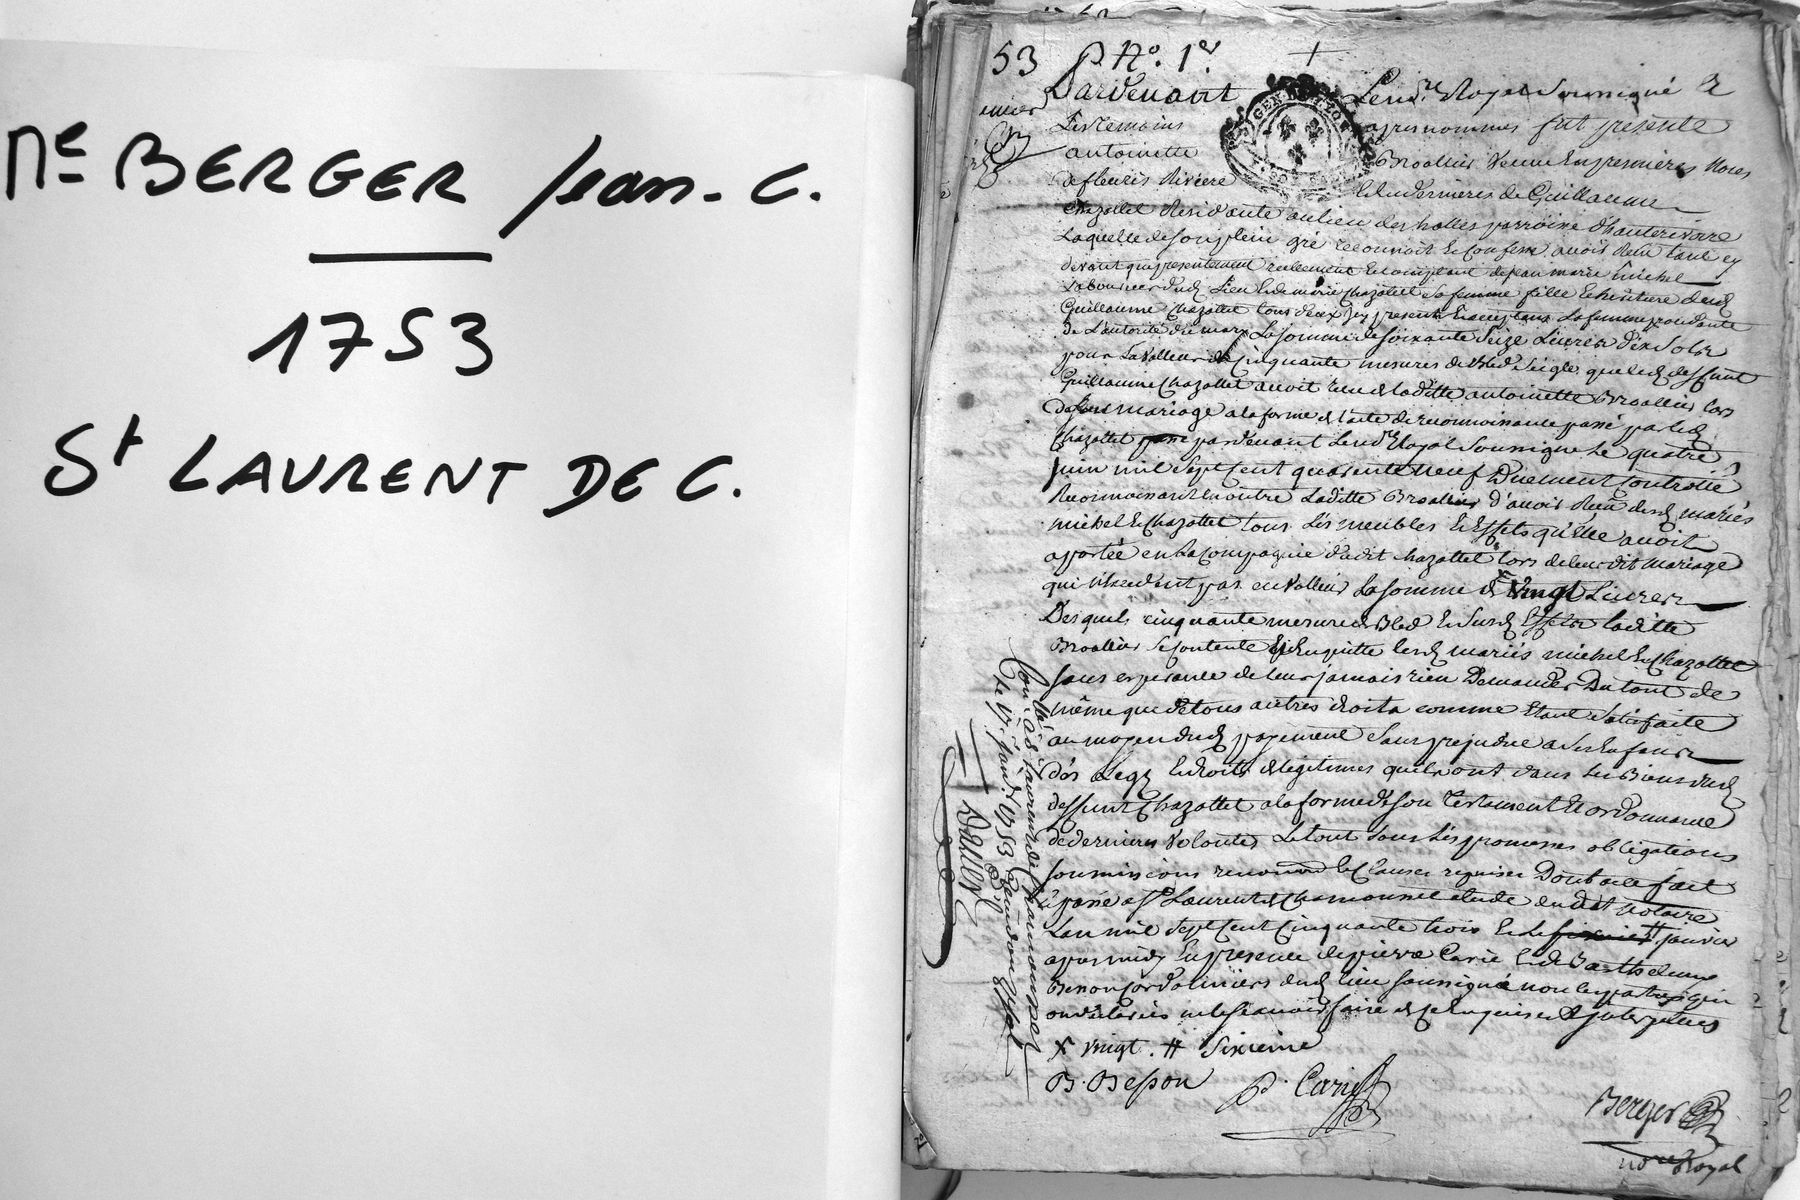 Me BERGER Jean-C.
1753
St LAURENT DE C.
53 P No. 1er
Pardevant Le nore Royal Soussigné &
Les temoins apres nommes fut presente
antoinette Broallier veuve En premieres Noces
de fleuris Riviere Et en dernieres de Guillaume
Chazottel Residante au lieu des halles parroisse d'hauterivoire
Laquelle de son plein gré reconnoit Et Confesse avoir Reçu tant cy
devant que presentement reellement Et comptant de jean marie michel
Laboureur dud Lieu Et de marie Chazottel sa femme fille Et heritiere dud
Guillaume Chazottel tous deux icy presents Et acceptans La femme procedante
de L'autorité du mary La somme de soixante Seize Livres dix Sols
pour La valleur de Cinquante mesures de Bled Seigle que led deffunt
Guillaume Chazottel avoit reçu de laditte antoinette Broallier lors
de leur mariage a la forme de l'acte de reconnoissance passé par led
Chazottel pardevant Le nore Royal Soussigné Le quatre
juin mil Sept Cent quarente neuf Duement Controllé
Reconnoissant En outre Laditte Broallier d'avoir Reçu desd mariés
michel Et Chazottel tous Les meubles Et Effets qu'Elle avoit
aportée en La Compagnie dudit Chazottel lors de leurdit Mariage
qui n'Excedent pas en Valleur La somme de x Vingt Livres
Desquels cinquante mesures Bled Et Susd Effets laditte
Broallier Se Contente Et En quitte lesd mariés michel Et Chazottel
sans esperance de leur jamais rien Demander Du tout de
même que de tous autres droits comme Etant Satisfaite
au moyen dud payement Sans prejudice a Ses Enfans
des Legs Et droits de legitimes qu'ils ont dans Les Biens dud
deffunt Chazottel a la forme de son Testament Et ordonnance
de dernieres Volontés Le tout Sous Les promesses obligations
soumissions renon Et Clauses requises Dont acte fait
Et passé a St Laurent de Chamousset etude dudit Notaire
L'an mil Sept Cent Cinquante trois Et Le premier # janvier
apres midy En presence de pierre Carié Et de Barthelemy
Besson Cordonniers dud Lieu Soussignés non les parties qui
ont declarés ne le Scavoir faire de ce Enquises Et Interpellées
x vingt. # Sixieme
B. Besson P. Carié Berger
nore Royal
Conllé a St Laurent de Chamousset
le 17 janer 1753
Dauer